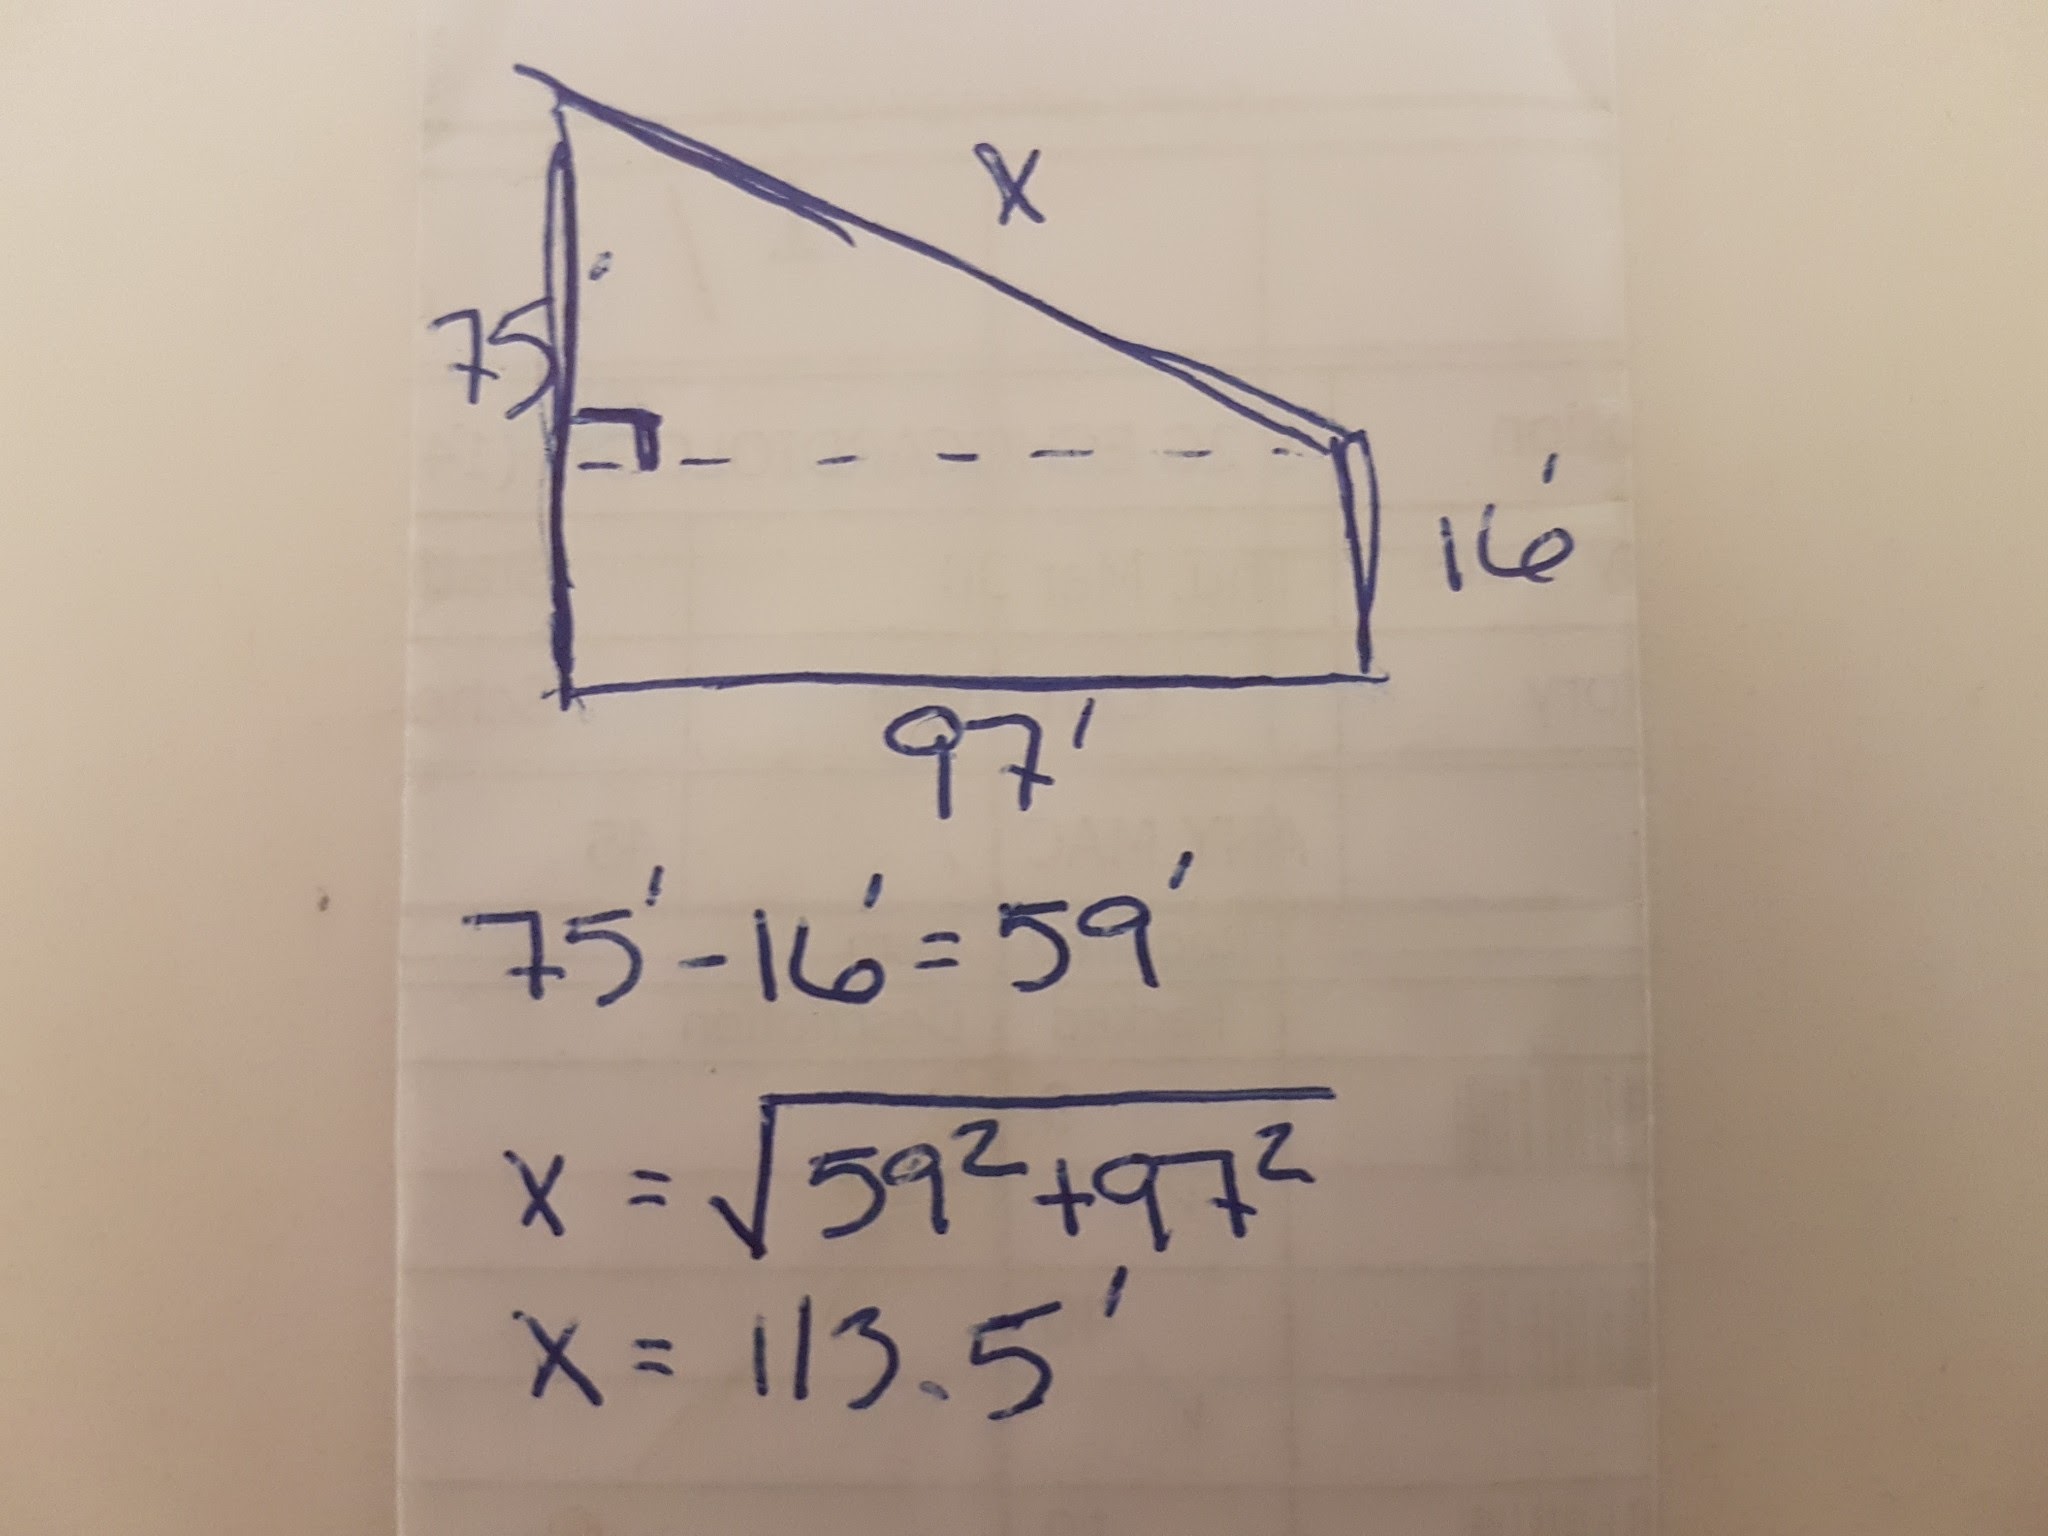 x
75'
16'
97'
75' - 16' = 59'
x = √59² + 97²
x = 113.5'